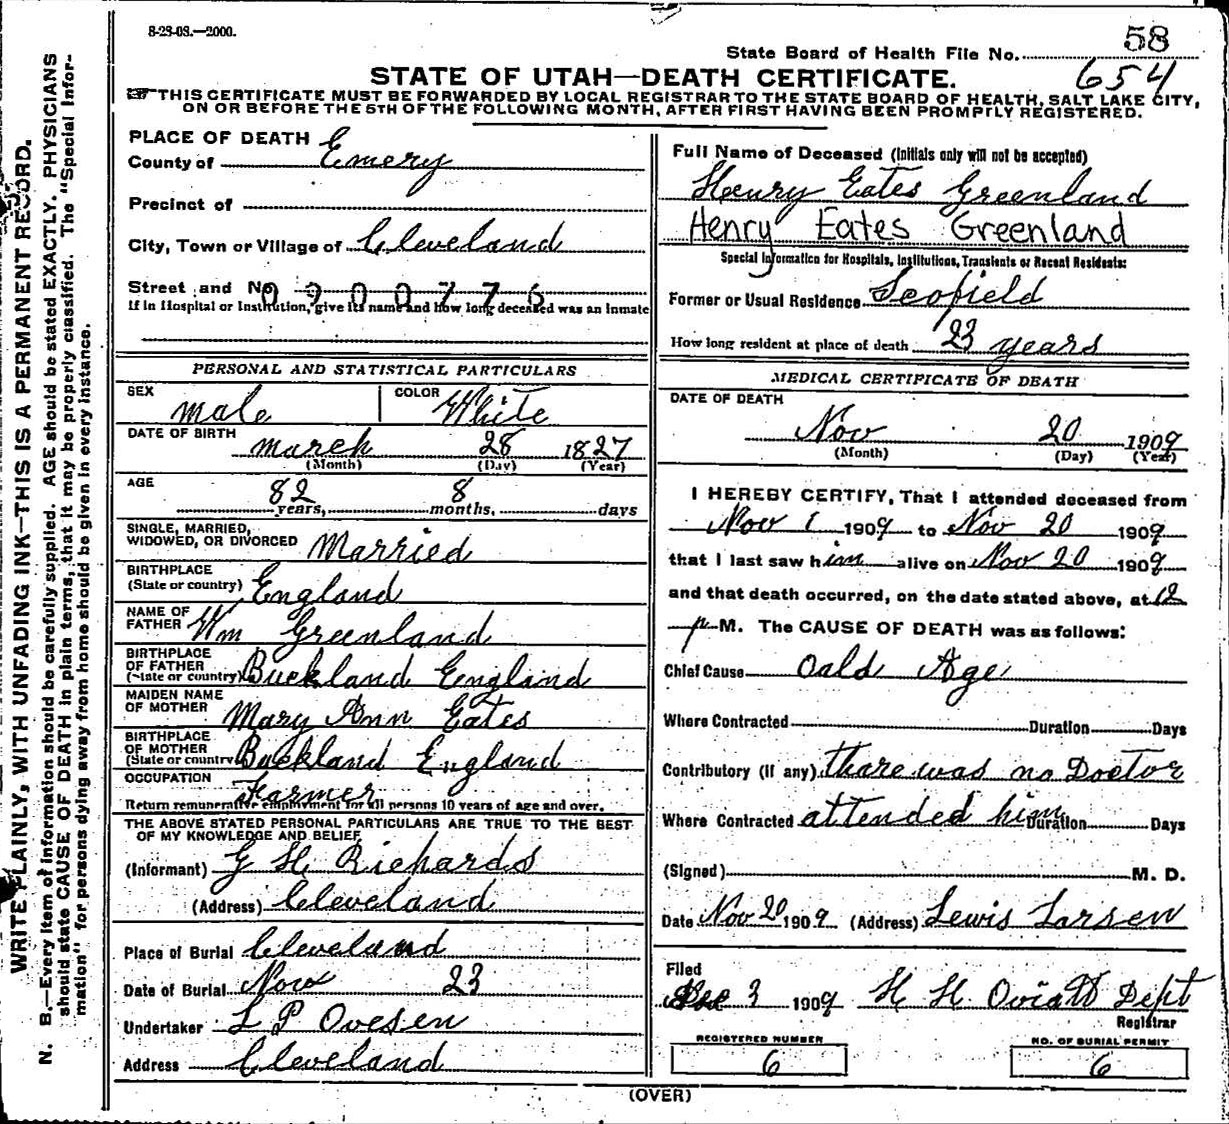 8-28-08.—2000.
58
State Board of Health File No.
654
STATE OF UTAH—DEATH CERTIFICATE.
THIS CERTIFICATE MUST BE FORWARDED BY LOCAL REGISTRAR TO THE STATE BOARD OF HEALTH, SALT LAKE CITY,
ON OR BEFORE THE 5TH OF THE FOLLOWING MONTH, AFTER FIRST HAVING BEEN PROMPTLY REGISTERED.
WRITE PLAINLY, WITH UNFADING INK—THIS IS A PERMANENT RECORD.
N. B.—Every item of information should be carefully supplied. AGE should be stated EXACTLY. PHYSICIANS
should state CAUSE OF DEATH in plain terms, that it may be properly classified. The "Special Infor-
mation" for persons dying away from home should be given in every instance.
PLACE OF DEATH
County of Emery
Precinct of
City, Town or Village of Cleveland
Street and No. 0900776
If in Hospital or Institution, give its name and how long deceased was an Inmate
PERSONAL AND STATISTICAL PARTICULARS
SEX male COLOR White
DATE OF BIRTH march 28 1827
(Month) (Day) (Year)
AGE 82 years, 8 months, days
SINGLE, MARRIED,
WIDOWED, OR DIVORCED Married
BIRTHPLACE
(State or country) England
NAME OF
FATHER Wm Greenland
BIRTHPLACE
OF FATHER
(State or country) Buckland England
MAIDEN NAME
OF MOTHER Mary Ann Eates
BIRTHPLACE
OF MOTHER
(State or country) Buckland England
OCCUPATION Farmer
Return remunerative employment for all persons 10 years of age and over.
THE ABOVE STATED PERSONAL PARTICULARS ARE TRUE TO THE BEST
OF MY KNOWLEDGE AND BELIEF
(Informant) G H Richards
(Address) Cleveland
Place of Burial Cleveland
Date of Burial Nov 23
Undertaker L P Ovesen
Address Cleveland
Full Name of Deceased (Initials only will not be accepted)
Henry Eates Greenland
Henry Eates Greenland
Special Information for Hospitals, Institutions, Transients or Recent Residents:
Former or Usual Residence Scofield
How long resident at place of death 23 years
MEDICAL CERTIFICATE OF DEATH
DATE OF DEATH
Nov 20 1909
(Month) (Day) (Year)
I HEREBY CERTIFY, That I attended deceased from
Nov 1 1909 to Nov 20 1909
that I last saw him alive on Nov 20 1909
and that death occurred, on the date stated above, at 12
p M. The CAUSE OF DEATH was as follows:
Chief Cause oald Age
Where Contracted Duration Days
Contributory (if any) thare was no Doctor
Where Contracted attended him Duration Days
(Signed) M. D.
Date Nov 20 1909 (Address) Lewis Larsen
Filed
Dec 3 1909 H H Oviatt Dept
Registrar
REGISTERED NUMBER
6
NO. OF BURIAL PERMIT
6
(OVER)